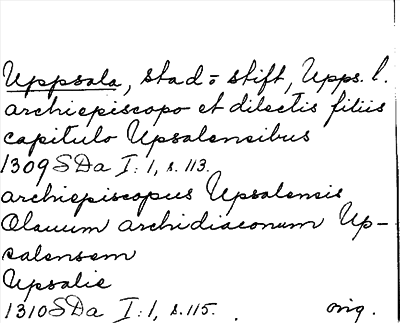 Uppsala, stad o stift, Upps. l.
archiepiscopo et dilectis filiis
capitulo Upsalensibus
1309 SDa I:1, s. 113.
archiepiscopus Upsalensis
Olauum archidiaconum Up-
salensem
Upsalie
1310 SDa I:1, s. 115. orig.